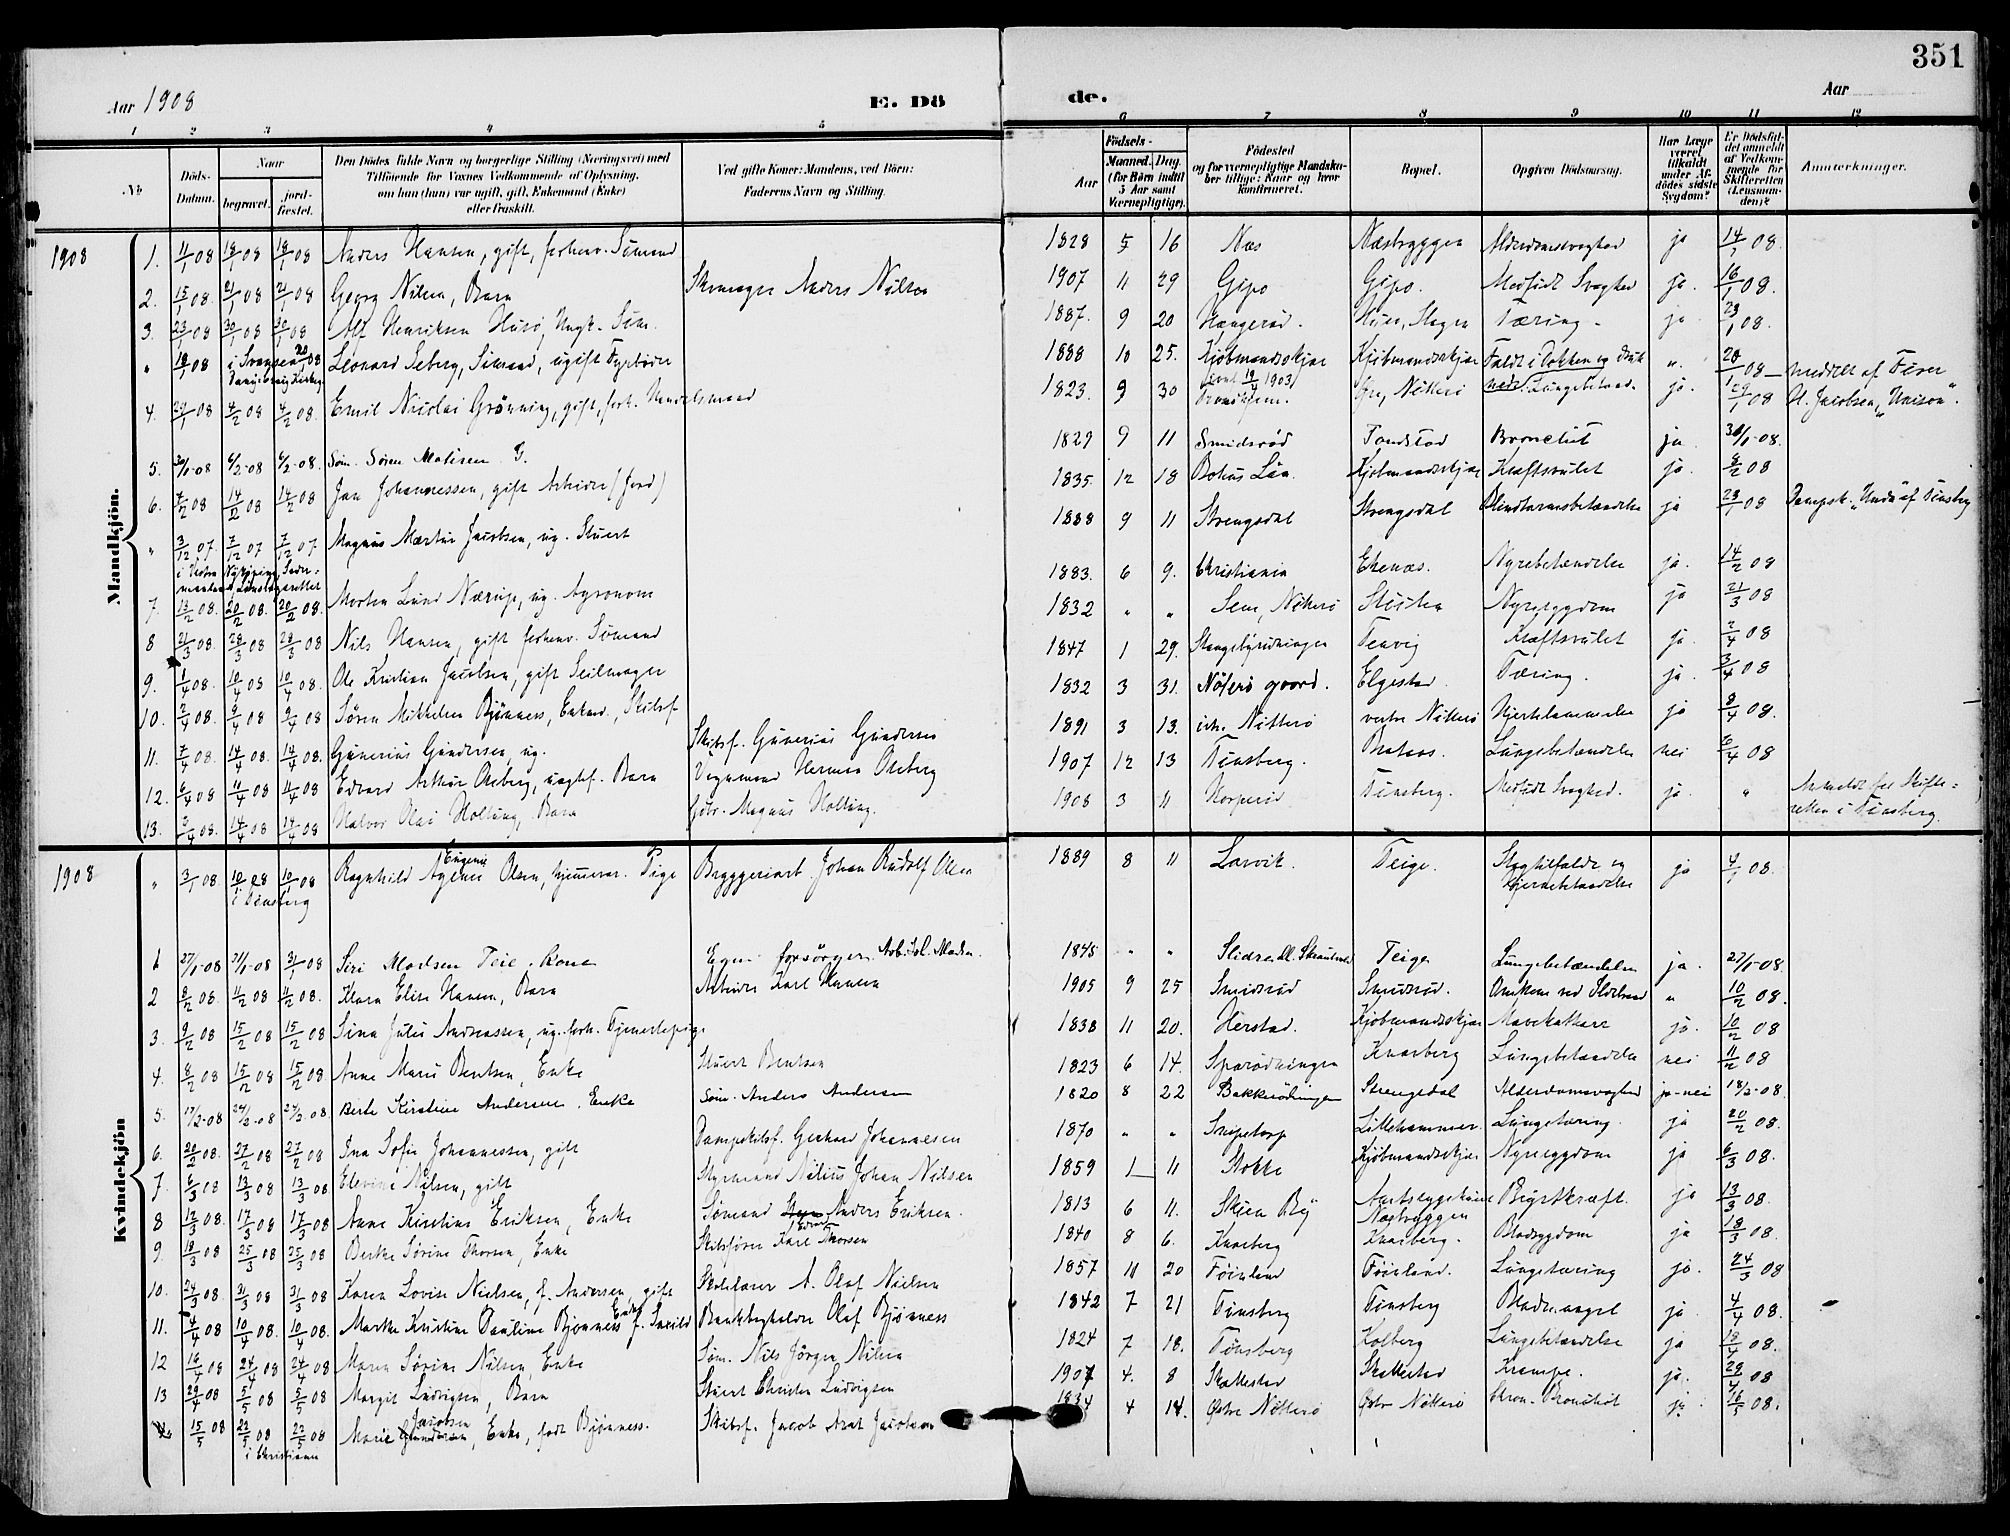 351
Aar 1908
E. Dø
de.
Aar
1 2 3 4 5
6 7 8 9 10 11 12
No
Døds-Datum.
Naar
begravet.
jord-fæstet.
Den Dødes fulde Navn og borgerlige Stilling (Næringsvei) med
Tilføiende for Voxnes Vedkommende af Oplysning,
om han (hun) var ugift, gift, Enkemand (Enke)
eller fraskilt.
Ved gifte Koner: Mandens, ved Börn:
Faderens Navn og Stilling.
Födsels-
Aar
Maaned. Dag.
(for Börn indtil
5 Aar samt
Værnepligtige).
Födested
og for værnepligtige Mandska-
ber tillige: Naar og hvor
konfirmeret.
Bopæl.
Opgiven Dödsaarsag.
Har Læge
været
tilkaldt
under Af-
dödes sidste
Sygdom?
Er Dödsfal-
det anmeldt
af Vedkom-
mende for
Skifteretten
(Lensman-
den)?
Anmærkninger.
Mandkjön.
1908 1. 11/1 08 18/1 08 18/1 08 Anders Hansen, gift, forhenv. Sømand 1828 5 16 Næs Næsbryggen Alderdomssvaghed ja 14/1 08.
2. 15/1 08. 21/1 08 21/1 08 Georg Nilsen, Barn Skomager Anders Nilsen 1907 11 29 Gipø Gipø. Medfødt Svaghed ja. 16/1 08.
3. 23/1 08 30/1 08 30/1 08 Alf Henriksen Husø, Ungk. Søm. 1887. 9 20 Hængerød. Husø, Slagen Tæring. ja 23/1 08.
" 18/1 08 i Svansea 20/1 08 Leonard Seberg, Sømand, ugift Fyrbøder 1888 10 25. Kjøbmandsskjær Kjöbmandsskjær Faldt i Dokken og druk-nede. ". 20/1 08 — meddelt af Firma
H. Jacobsen, "Unison".
4. 29/1 08 4/2 08 4/2 08. Emil Nicolai Grønning, gift, forh. Handelsmand 1823. 9 30 Øre, Nøtterø Lungebetænd. ja. 29/1 08
5. 30/1-08 6/2-08 6/2-08. Søm. Søren Matisen G. 1829 9 11 Smidsrød Bronchit ja 30/1-08.
6. 7/2 08 14/2 08 14/2 08 Jan Johannessen, gift Arbeider (Jord) 1835. 12 18 Bohus Län Kjøbmandsskjær Kræftsvulst ja. 8/2 08
" 3/12 07. 7/12 07 7/12 07 Magnus Martin Jacobsen, ug. Stuert 1888 9 11 Strengsdal Strengsdal Blindtarmsbetændelse ja 23/1 08 Dampsk. "Unda" af Tønsberg
7. 13/2 08. 20/2 08. 20/2 08. Morten Lund Nærup, ug. Agronom 1883. 6 9. Christiania Ekenæs. Nyrebetændelse ja. 14/2 08
8 21/3 08 28/3 08 28/3 08 Nils Hansen, gift forhenv. Sømand 1832 " " Sem, Nøtterø Nyresygdom ja 21/3 08
9. 1/4 08. 10/4 08 10/4 08. Ole Kristian Jacobsen, gift Seilmager 1847 1 29. Stangebyrødningen Tenvig Kræftsvulst ja. 2/4 08
10. 2/4 08. 9/4 08 9/4 08 Søren Mikkelsen Bjønness, Enkmd., Skibsf. 1832 3 31. Nøterø gaard. Elgestad. Tæring. ja. 3/4 08
11. 7/4 08. 14/4 08. 14/4 08 Gunerius Gundersen, ug. Skibsf. Gunerius Gundersen 1891 3 13. Nøtterø vestre Nøtterø Hjertelammelse ja 8/4 08.
12. 6/4 08 11/4 08 11/4 08 Edvard Arthur Oseberg, uægtef. Barn Vognmand Herman Oseberg 1907 12 13 Tønsberg. Lungebetændelse nei 6/4 08
13. 3/4 08. 14/4 08 14/4 08 Halvor Olai Holtung, Barn Magnus Holtung. 1908 3 11 Tønsberg. Medfødt Svaghed. ja. " Anmeldt for Skifte-
retten i Tønsberg.
Kvindekjön
1908 " 3/1 08. 10/1 08 10/1 08 Ragnhild Eugenie Olsen, hjemmev. Pige Bryggeriarb. Johan Rudolf Olsen 1889 8 11 Larvik. Teige. Slagtilfælde og
Hjernebetændelse ja 4/1 08.
i Tønsberg
1 27/1-08 31/1-08 31/1 08 Siri Madsen Teie. Kone Egen forsörger 1845 " " Teige Lungebetændelse ja. 27/1-08.
2 8/2 08. 11/2 08 11/2 08. Klara Elise Hansen, Barn Arbeider Karl Hansen 1905 9 25 Smidsrød Smidsrød. Omkom ved Ildebrand " 10/2 08.
3. 9/2 08 15/2 08 15/2 08 Sina Julie Andreassen, ug. forh. Tjenestepige 1838 11 20. Herstad. Kjöbmandsskjær Mavekatharr ja. 10/2 08
4. 8/2 08 15/2 08 15/2 08. Anne Marie Bentsen, Enke Stuert Bentsen 1823 6 14. Sparødningen Knarberg Lungebetændelse nei 11/2 08
5. 17/2-08 24/2-08 24/2-08 Berte Kirstine Andersen. Enke Søm. Anders Andersen 1820 8 22 Bakkerödningen Strengsdal Alderdomssvaghed ja-nei 18/2-08.
6. 20/2 08. 27/2 08 27/2 08 Ina Sofie Johannessen, gift Dampskibsf. Gerhard Johannesen 1870 " " Snipetorp Lillehammer. Lungetæring. ja 20/2 08.
7. 6/3 08 13/3 08 13/3 08. Elevine Nilsen, gift Styrmand Nilius Johan Nilsen 1859 1 11 Stokke Kjöbmandsskjær Nyresygdom ja 6/3 08.
8 12/3 08. 17/3 08 17/3 08. Anne Kirstine Eriksen, Enke Sømand Anders Eriksen. 1813 6 11. Skien By Amtssygehuset
Næsbryggen Brystkræft. ja 13/3 08.
9. 18/3 08 25/3 08 25/3 08 Berthe Sørine Thorsen, Enke Skibsfører Karl Thorsen 1840 8 6. Knarberg Knarberg. Blodsygdom ja 18/3 08.
10. 24/3 08 31/3 08 31/3 08 Karen Lovise Nielsen, f. Andersen, gift Skolelærer A. Olaf Nielsen 1857 11 20 Föinland Föinland. Lungetæring ja. 24/3 08
11. 4/4 08 10/4 08. 10/4 08. Marthe Kristine Pauline Bjønness Enke Bankbogholder Olaf Bjønness 1842 7 21 Tønsberg Tønsberg Blodmangel ja 4/4 08.
12 18/4 08 24/4 08 24/4 08 Maren Sørine Nilsen, Enke Søm. Nils Jørgen Nilsen 1824 7 18. Tønsberg Kolberg Lungebetændelse ja 18/4 08.
13 29/4 08 5/5 08 5/5 08 Margit Ludvigsen, Barn Stuert Christen Ludvigsen 1907 4. 8 Skallestad Skallestad Krampe. ja. 29/4 08
15/5 08 22/5 08 22/5 08 Marie Jacobsen, Enke, født Bjønness. Skibsf. Jacob Jacobsen 1834 4 14. Østre Nøtterø Østre Nøtterø Kron. Bronchit ja 16/5 08.
i Christiania